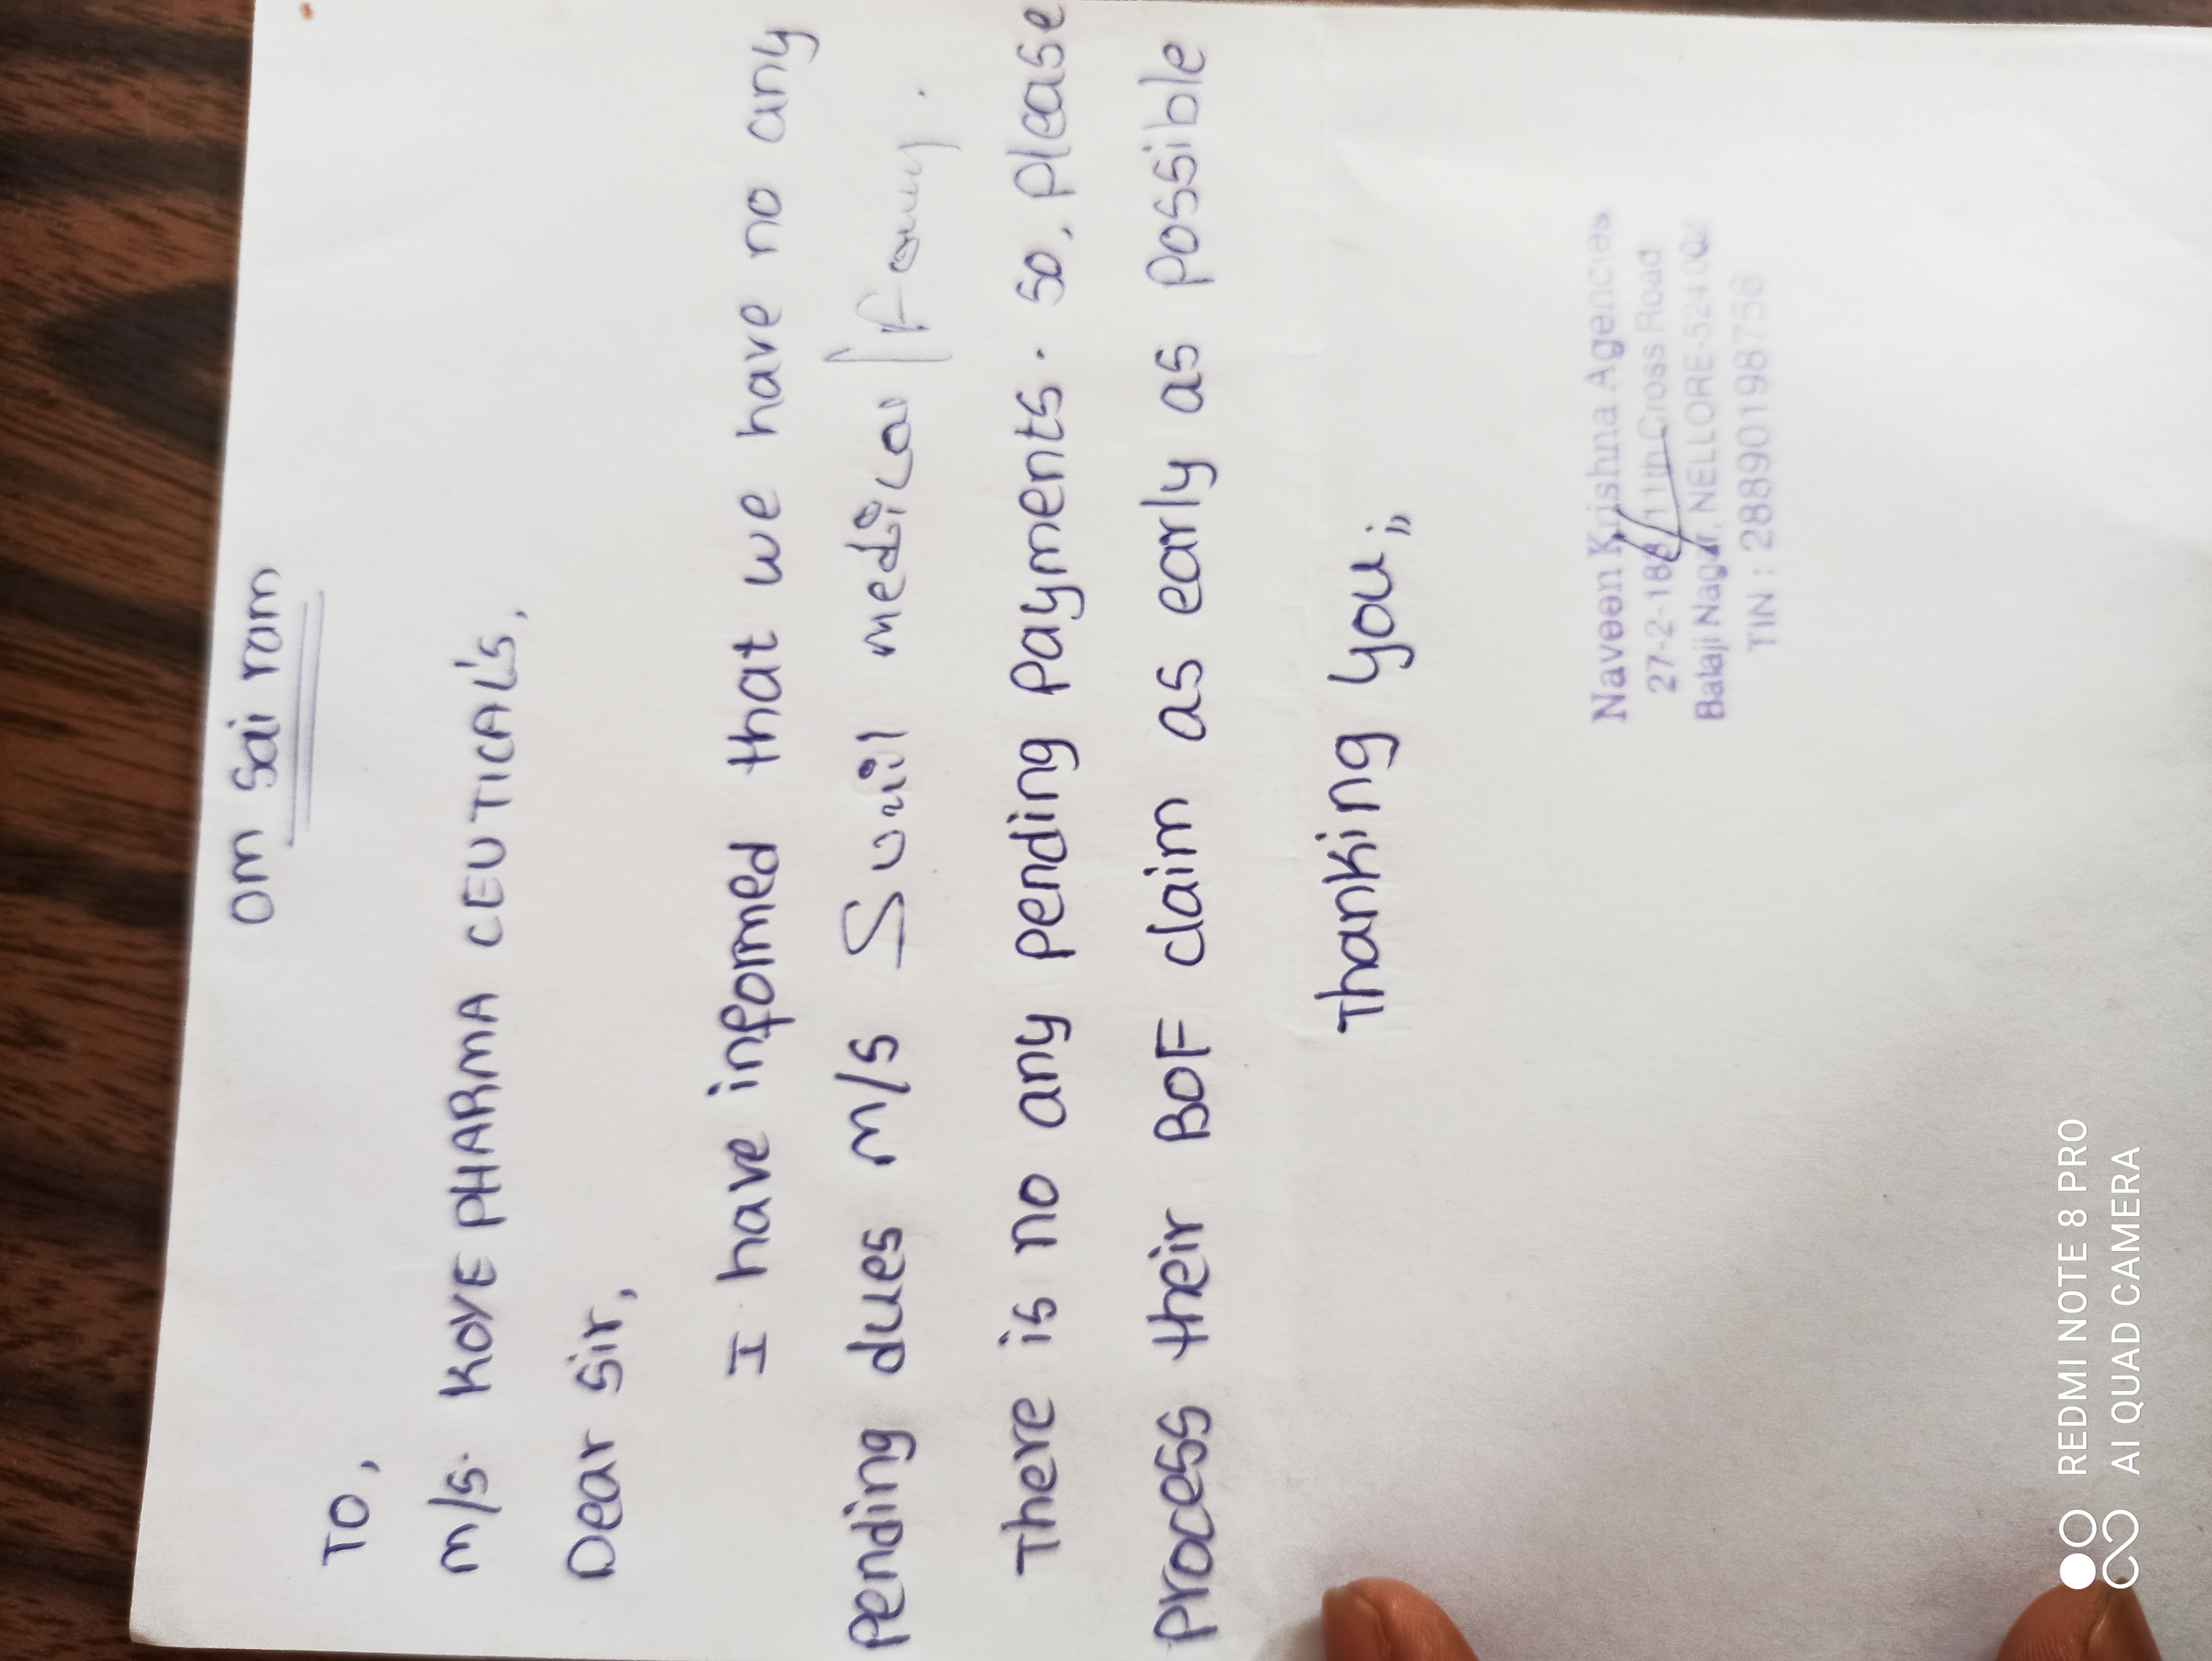 om sai ram
TO,
m/s. KOVE PHARMA CEUTICAL'S,
Dear sir,
I have informed that we have no any
pending dues m/s Sunil medical
There is no any pending payments. so, please
process their BOF claim as early as possible
Thanking you;,
Naveen Krishna Agencies
27-2-188/11th Cross Road
Balaji Nagar, NELLORE-524 002
TIN : 28890198756
REDMI NOTE 8 PRO
AI QUAD CAMERA